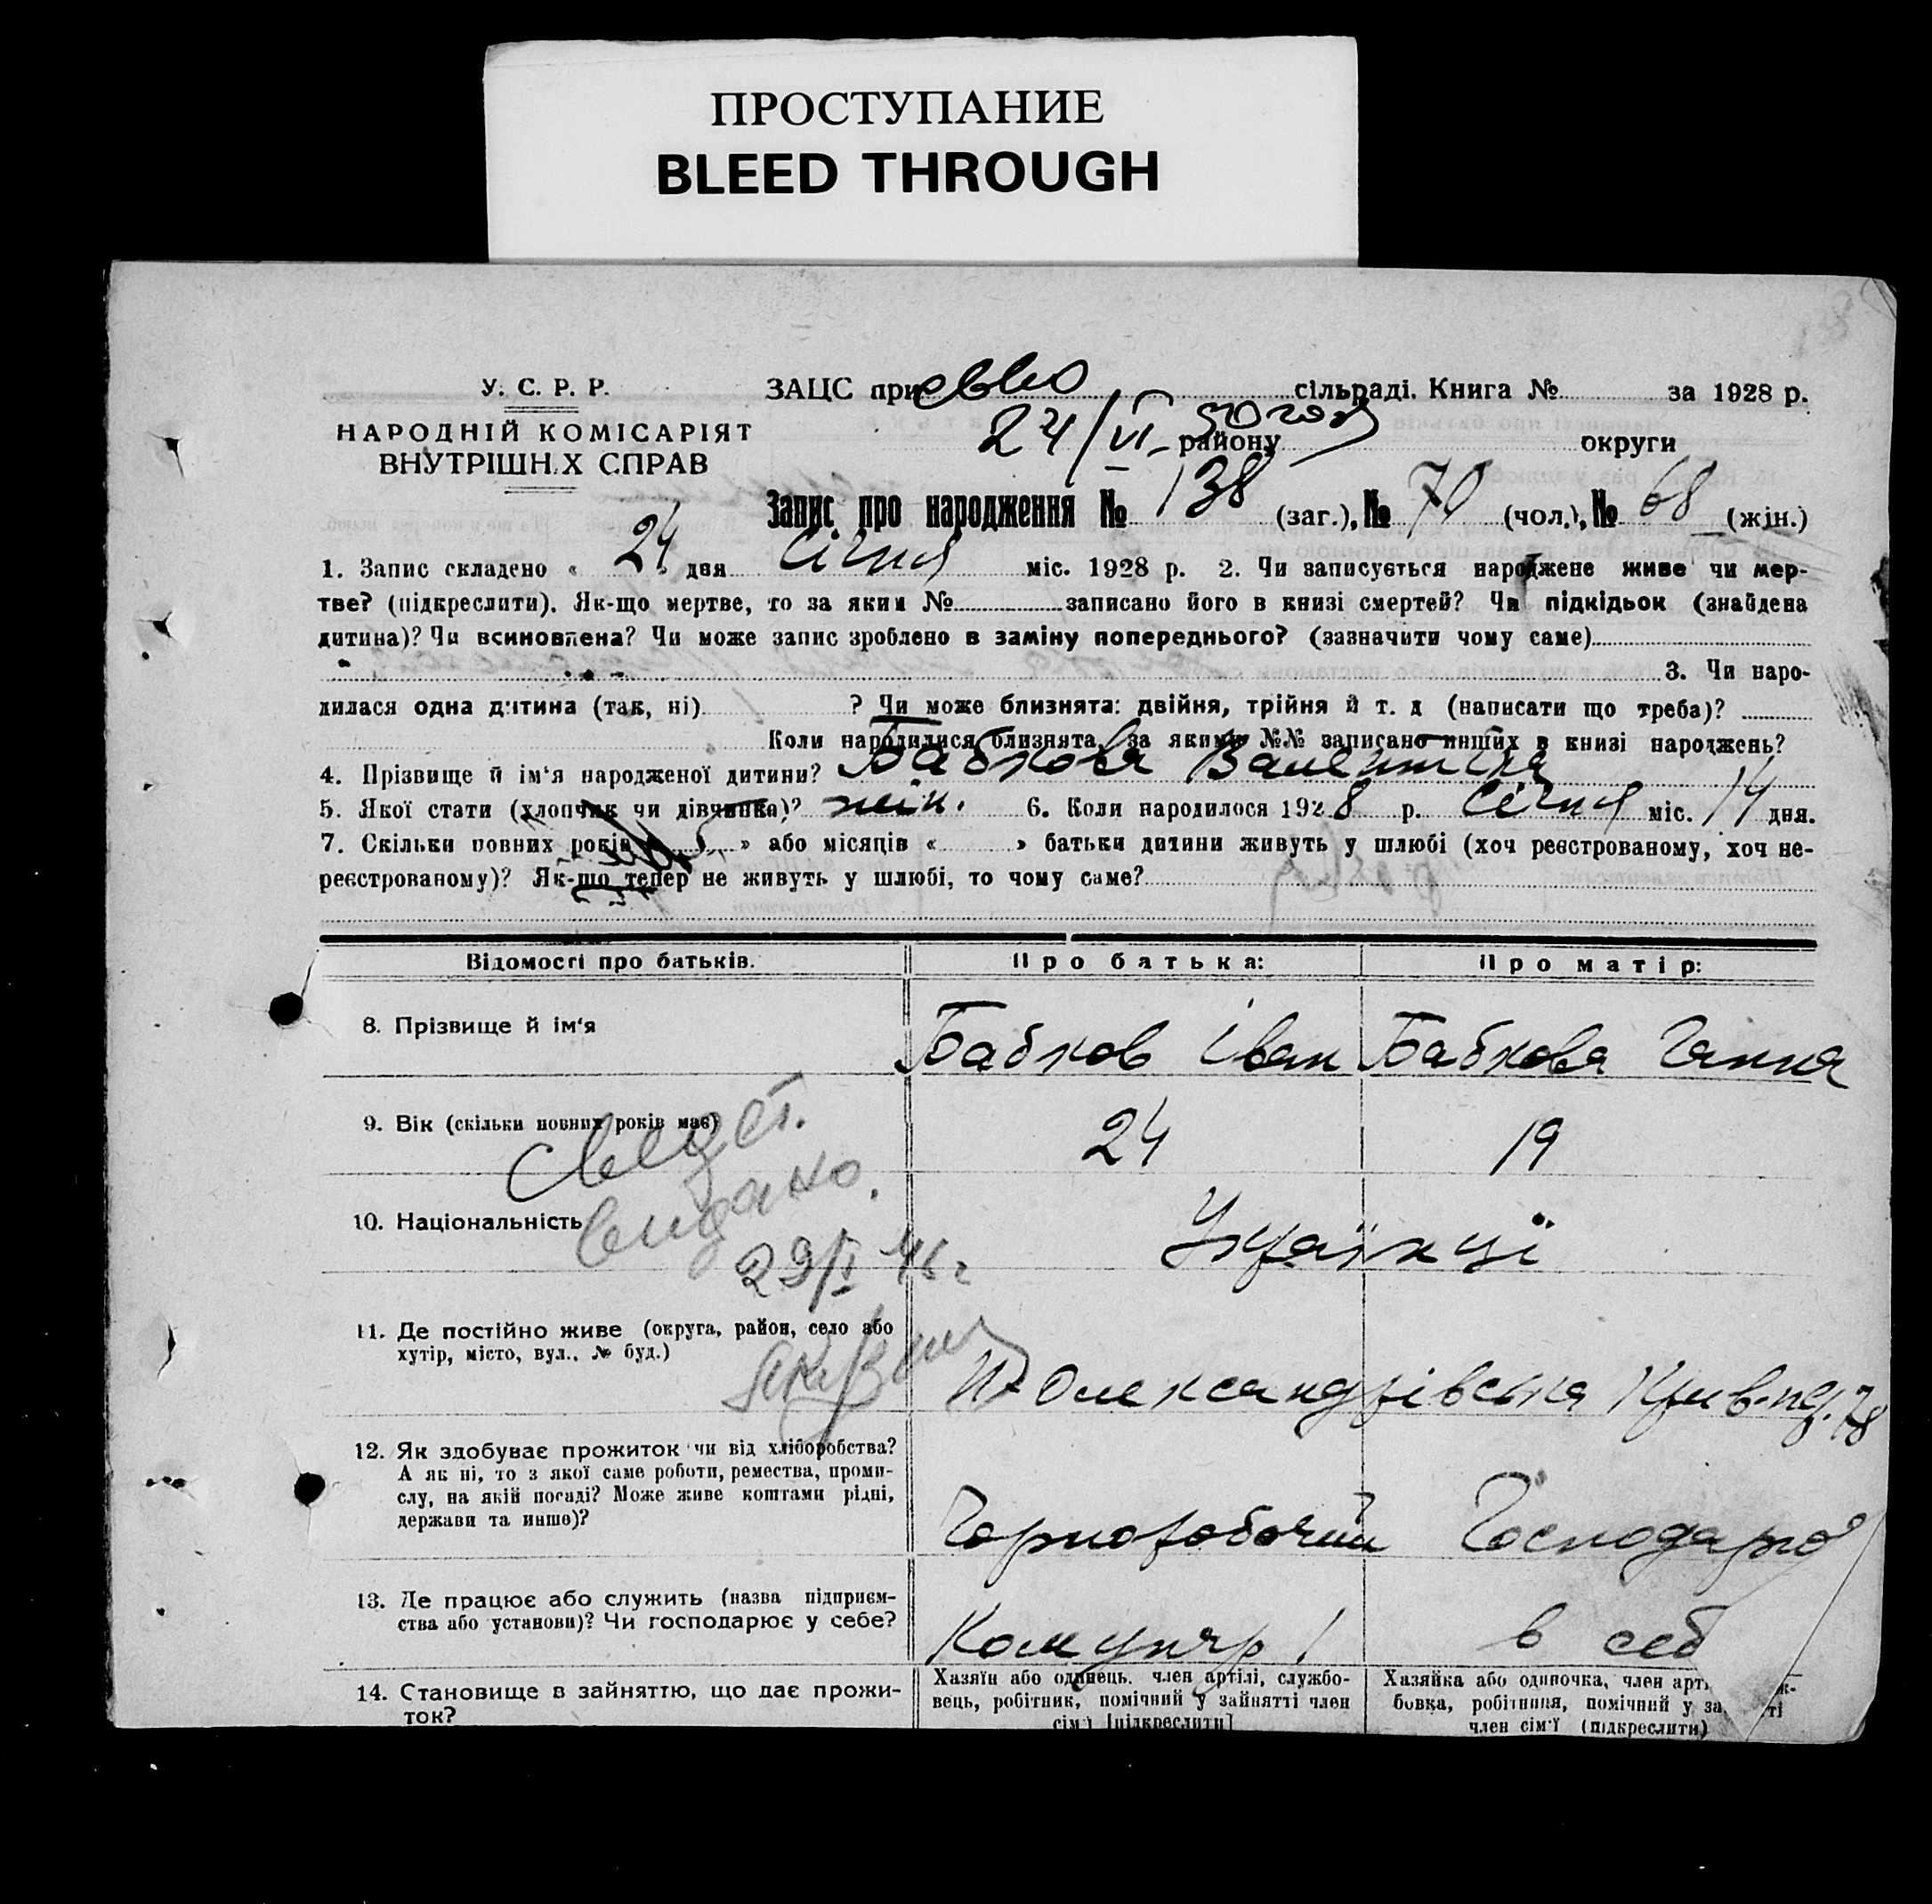 ПРОСТУПАНИЕ
BLEED THROUGH
У. С. Р. Р.
НАРОДНІЙ КОМІСАРІЯТ
ВНУТРІШН.Х СПРАВ
ЗАЦС при сільраді. Книга № за 1928 р.
24/VI 50 года району округи
Запис про народження № 138 (заг.), № 70 (чол.), № 68 (жін.)
1. Запис складено « 24 » дня Січня міс. 1928 р. 2. Чи записується народжене живе чи мер-
тве? (підкреслити). Як-що мертве, то за яким № записано його в книзі смертей? Чи підкідьок (знайдена
дитина)? Чи всиновлена? Чи може запис зроблено в заміну попереднього? (зазначити чому саме)
3. Чи наро-
дилася одна дитина (так, ні) ? Чи може близнята: двійня, трійня й т. д (написати що треба)?
Коли народилися близнята, за якими №№ записано инших в книзі народжень?
4. Прізвище й ім'я народженої дитини? Бабкова Валентіна
5. Якої стати (хлопчик чи дівчинка)? жін. 6. Коли народилося 1928 р. Січня міс. 14 дня.
7. Скільки повних років « » або місяців « » батьки дитини живуть у шлюбі (хоч реєстрованому, хоч не-
реєстрованому)? Як-що тепер не живуть у шлюбі, то чому саме?
Відомості про батьків. Про батька: Про матір:
8. Прізвище й ім'я Бабков Іван Бабкова Ганна
9. Вік (скільки повних років має) 24 19
свідст.
видано.
10. Національність Українці
29/I 46 г
11. Де постійно живе (округа, район, село або
хутір, місто, вул., № буд.)
Олександрівська 78
12. Як здобуває прожиток чи від хліборобства?
А як ні, то з якої саме роботи, ремества, проми-
слу, на якій посаді? Може живе коштами рідні,
держави та инше)?
Чорноробочий Господарю
13. Де працює або служить (назва підприєм-
ства або установи)? Чи господарює у себе?
в себ
14. Становище в зайняттю, що дає прожи-
ток?
Хазяїн або одинець. член артілі, службо-
вець, робітник, помічний у зайнятті член
сім'ї [підкреслити]
Хазяйка або одиночка, член арт
бовка, робітниця, помічний у за ті
член сім'ї (підкреслити)